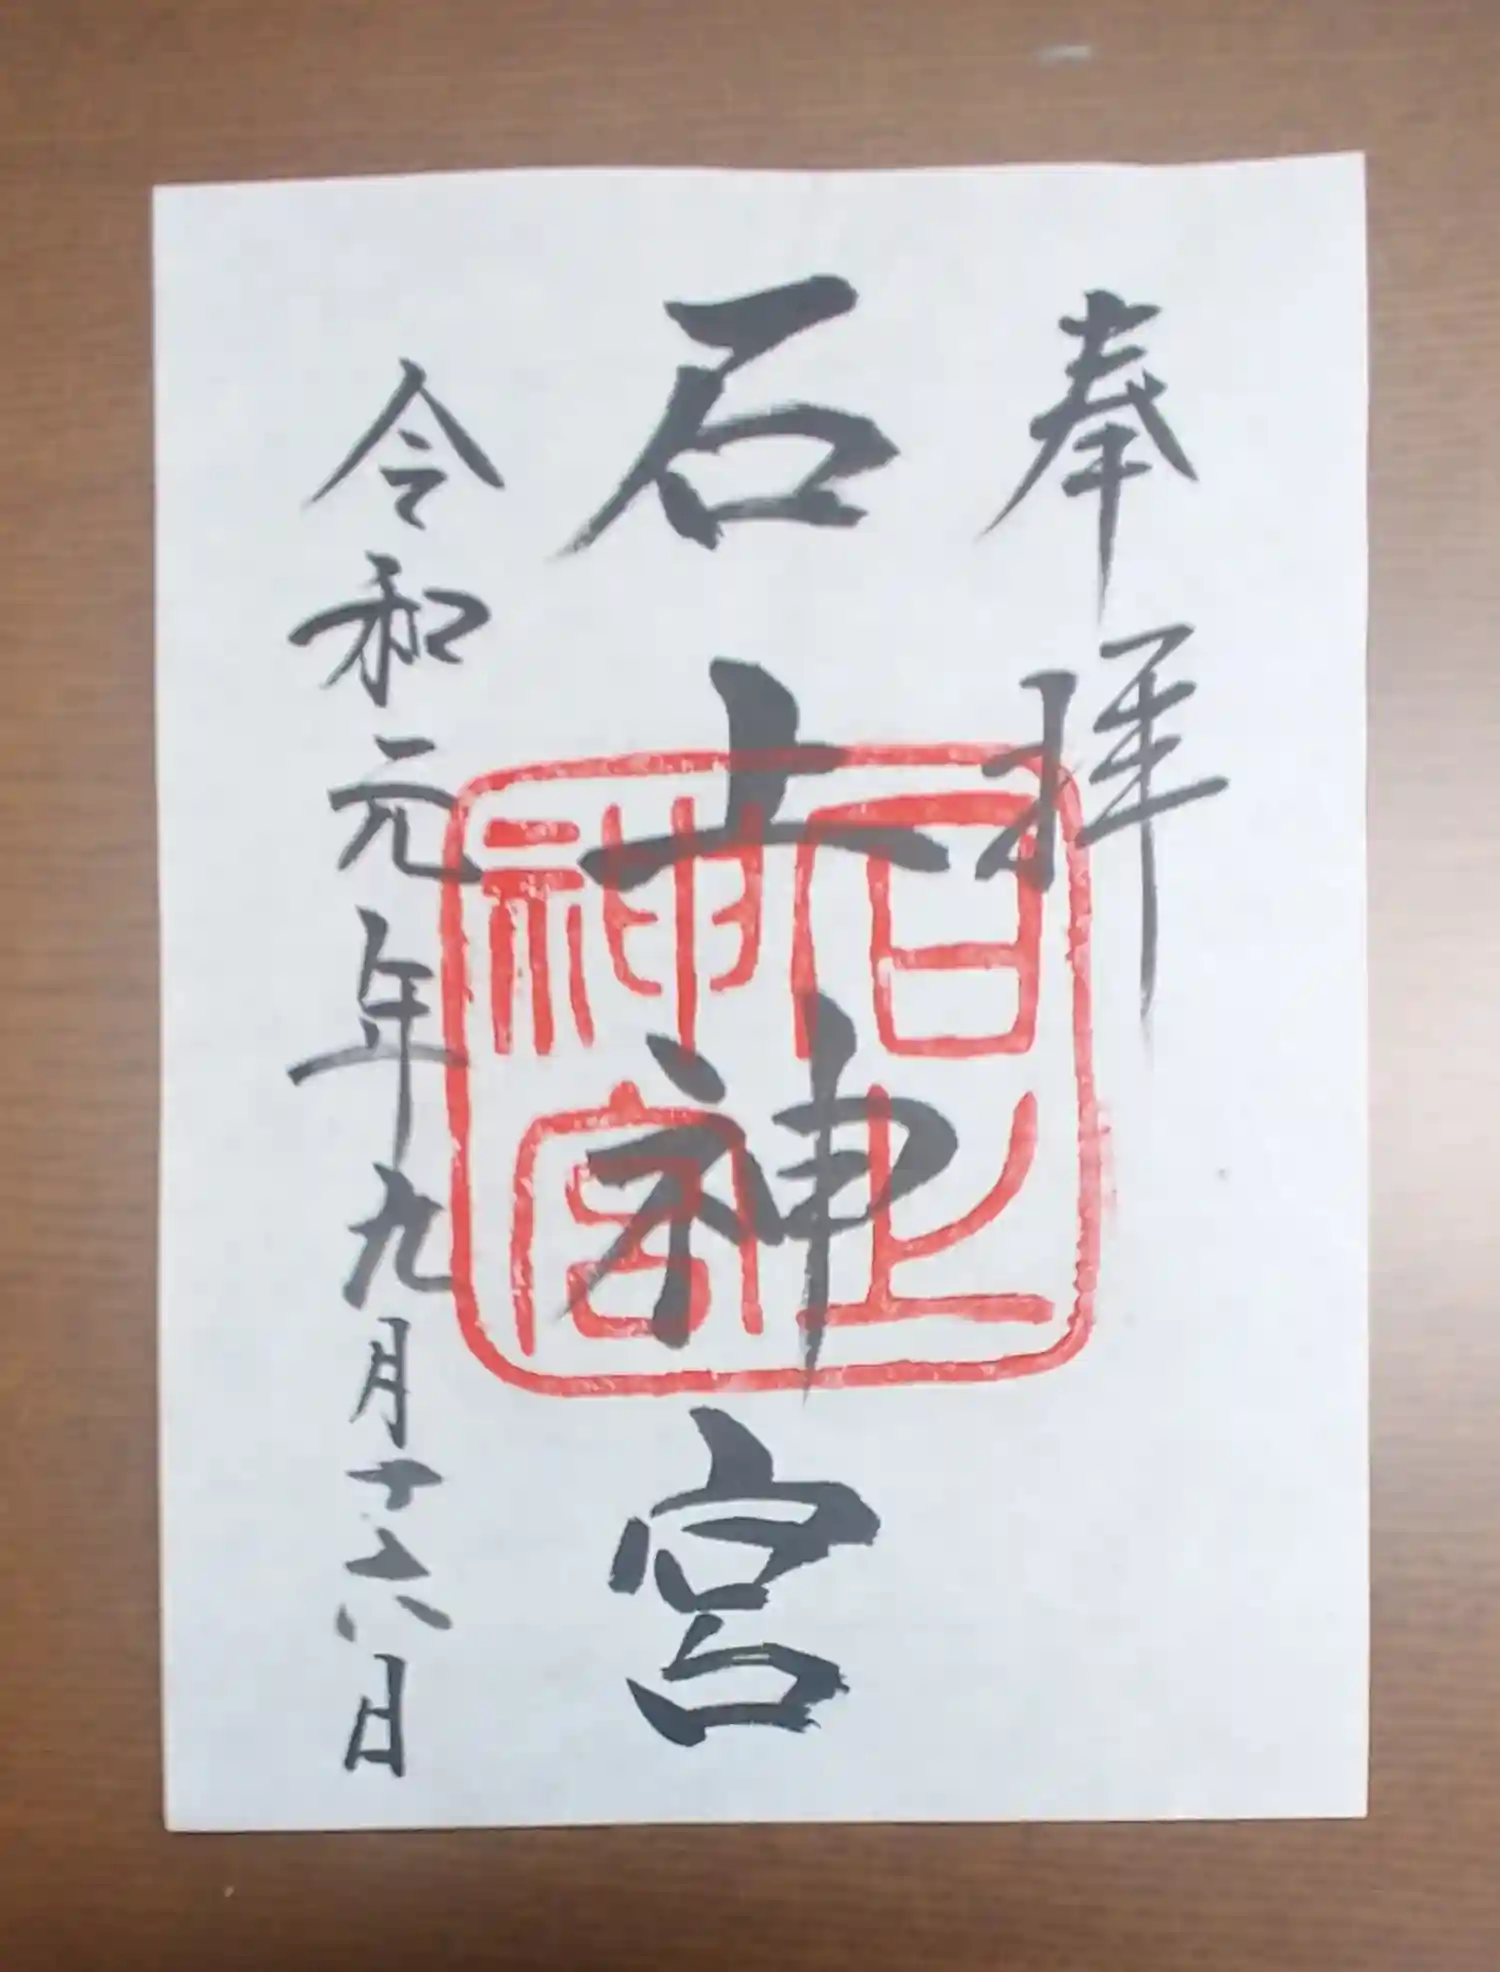 奉拝
石上神宮
令和元年九月十六日
石上
神宮